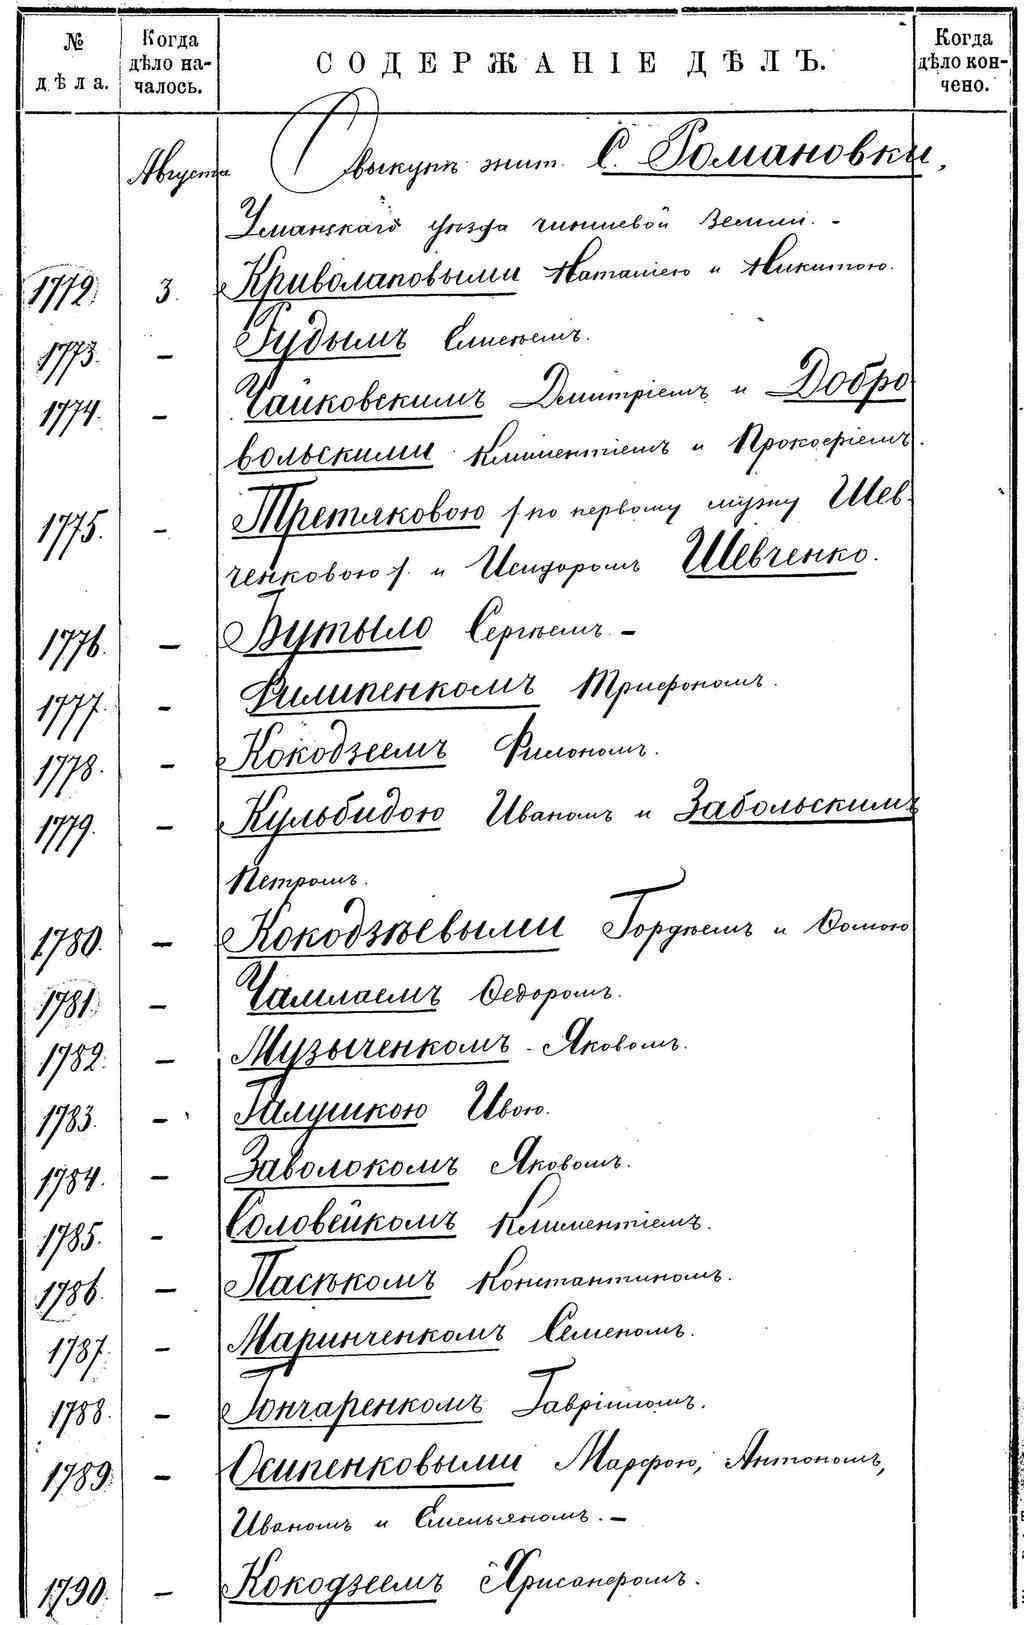 № дѣла.
Когда дѣло началось.
СОДЕРЖАНІЕ ДѢЛЪ.
Когда дѣло кончено.
Августа О выкупѣ жит. С. Романовки,
Уманскаго уѣзда чиншевой земли. -
1772 3. Криволаповыми Наталіею и Никитою.
1773. — Рудымъ Елисѣемъ.
1774. — Чайковскимъ Дмитріемъ и Добро
вольскими Климентіемъ и Прокофіемъ.
1775. — Третяковою /по первому мужу Шев-
ченковою/. и Исидоромъ Шевченко.
1776. — Бутыло Сергѣемъ. —
1777. — Филипенкомъ Трифономъ.
1778. — Кокодзеемъ Филономъ.
1779. — Кульбидою Иваномъ и Забольскимъ
Петромъ.
1780. — Кокодзѣевыми Гордѣемъ и Ѳомою
1781. — Чамлаемъ Ѳедоромъ.
1782. — Музыченкомъ - Яковомъ.
1783. — Галушкою Ивою.
1784. — Заволокомъ Яковомъ.
1785. — Соловейкомъ Климентіемъ.
1786. — Пасѣкомъ Константиномъ.
1787. — Маринченкомъ Семеномъ.
1788. — Гончаренкомъ Гавріиломъ.
1789. — Осипенковыми Марфою, Антономъ,
Иваномъ и Емельяномъ. —
1790. — Кокодзеемъ Хрисанфомъ.